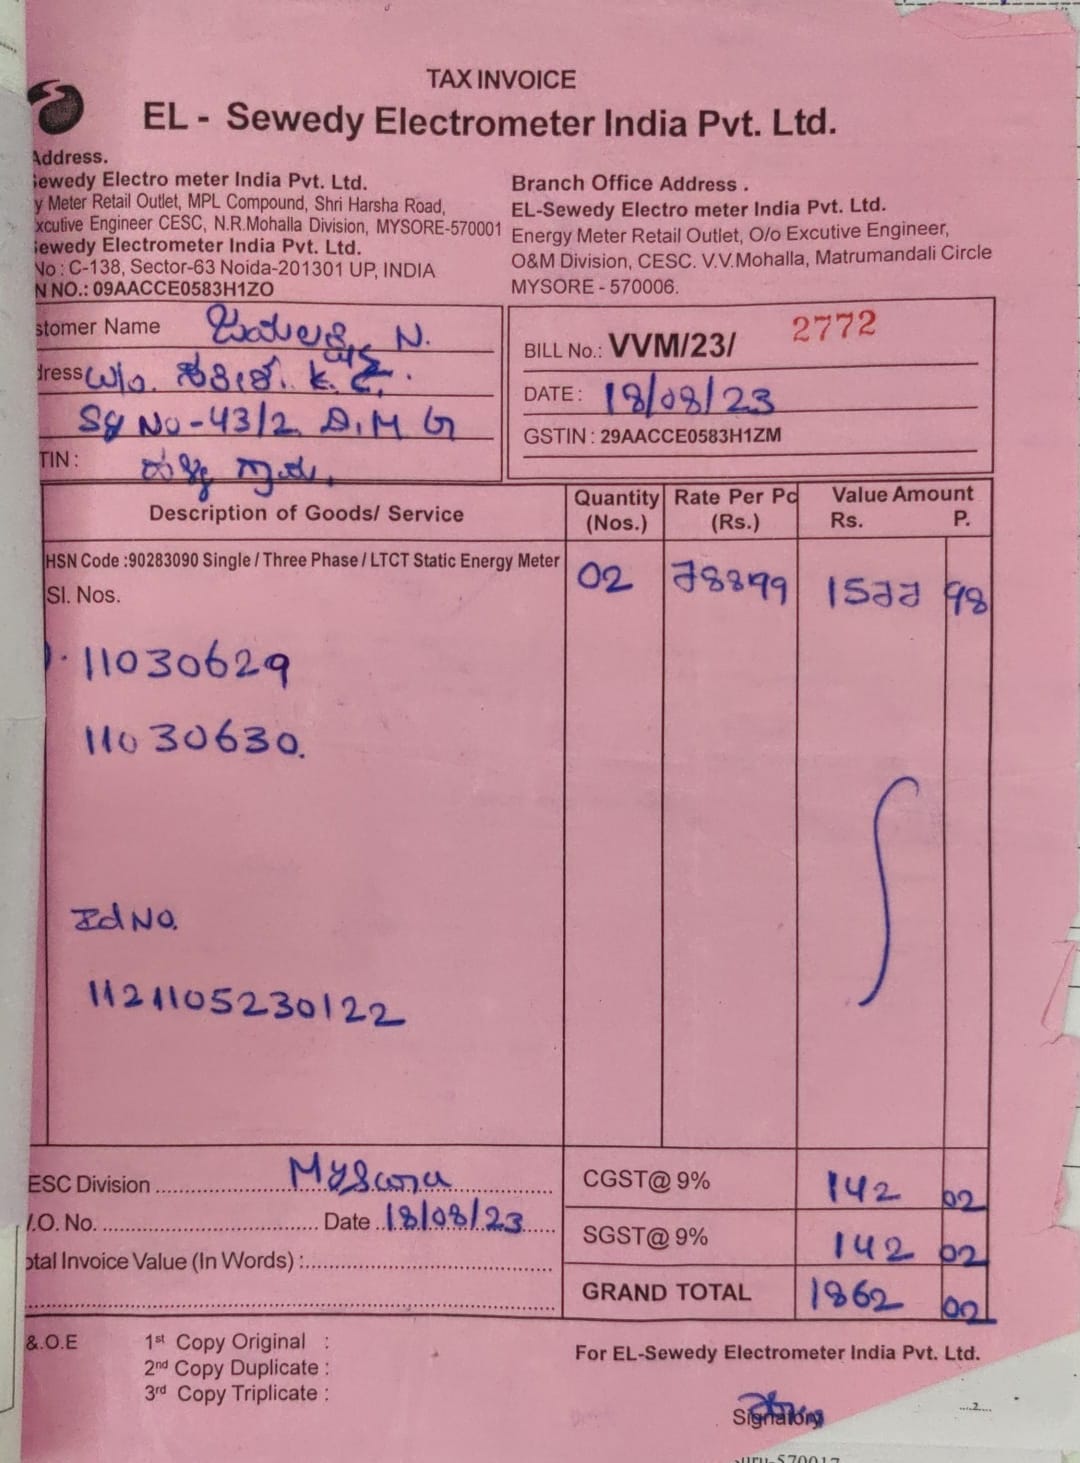 TAX INVOICE
EL - Sewedy Electrometer India Pvt. Ltd.
Address.
Sewedy Electro meter India Pvt. Ltd.
y Meter Retail Outlet, MPL Compound, Shri Harsha Road,
xcutive Engineer CESC, N.R.Mohalla Division, MYSORE-570001
Sewedy Electrometer India Pvt. Ltd.
No : C-138, Sector-63 Noida-201301 UP, INDIA
N NO.: 09AACCE0583H1ZO
Branch Office Address .
EL-Sewedy Electro meter India Pvt. Ltd.
Energy Meter Retail Outlet, O/o Excutive Engineer,
O&M Division, CESC. V.V.Mohalla, Matrumandali Circle
MYSORE - 570006.
stomer Name N.
dress W/o.
Sy No-43/2
TIN :
BILL No.: VVM/23/ 2772
DATE : 18/08/23
GSTIN : 29AACCE0583H1ZM
Description of Goods/ Service Quantity (Nos.) Rate Per Pc (Rs.) Value Amount Rs. P.
HSN Code :90283090 Single / Three Phase / LTCT Static Energy Meter 02 78899 1577 98
Sl. Nos.
11030629
11030630.
Id No.
1121105230122
ESC Division
.O. No. Date 18/08/23
otal Invoice Value (In Words) :
CGST@ 9% 142 02
SGST@ 9% 142 02
GRAND TOTAL 1862 02
&.O.E
1st Copy Original :
2nd Copy Duplicate :
3rd Copy Triplicate :
For EL-Sewedy Electrometer India Pvt. Ltd.
Signatory